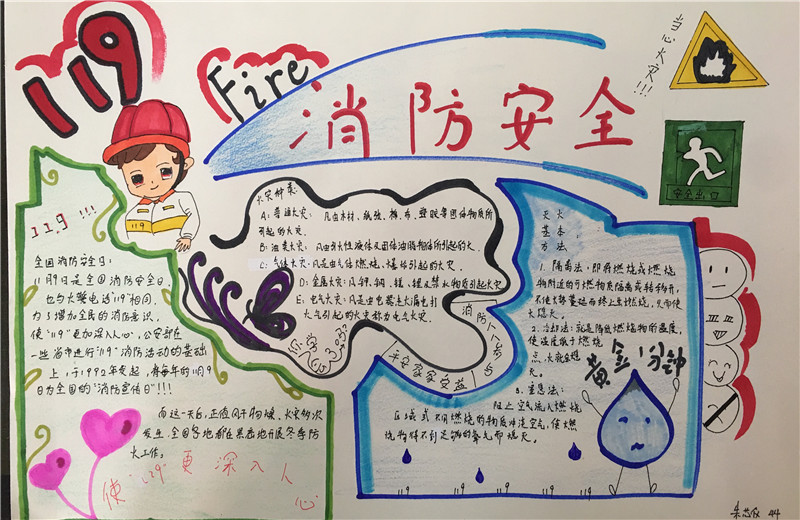 119
Fire
消防安全
当心火灾!!!
安全出口
119!!!
全国消防安全日:
11月9日是全国消防安全日,
也与火警电话"119"相同,
为了增加全民的消防意识,
使"119"更加深入人心,公安部在
一些省市进行"119"消防活动的基础
上,于1992年发起,将每年的11月9
日为全国的"消防宣传日"!!!
而这一天前后,正值风干物燥、火灾多次
发生,全国各地都在紧抓地开展冬季防
火工作。
使"119"更深入人
心
119
火灾种类:
A:普通火灾:凡由木材、纸张、棉、布、塑胶等固体物质所
引起的火灾。
B:油类火灾:凡由引火性液体及固体油脂物体所引起的火。
C:气体火灾:凡是由气体燃烧、爆炸引起的火灾。
D:金属火灾:凡钾、钠、镁、锂及禁水物质引起火灾
E:电气火灾:凡是由电器走火漏电引
火引起的火灾称为电气火灾。
消防人人参与
平安家家受益
灭火
基本
方法
1.隔离法:即将燃烧或燃烧
物附近的可燃物质隔离或转移开,
不使火势蔓延而终止其燃烧,灭而使
火熄灭。
2.冷却法:就是降低燃烧物的温度,
使温度低于燃烧
点,火就会熄
灭。
3.窒息法:
阻止空气流入燃烧
区域或用不燃烧的物质冲淡空气,使燃
烧物得不到足够的氧气而熄灭。
黄金1分钟
119 119 119 119 119